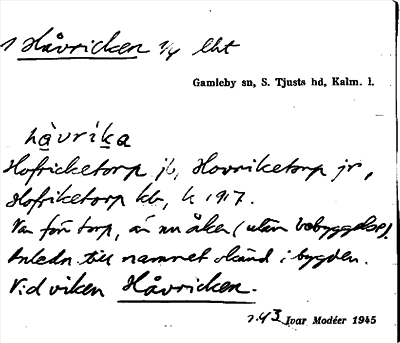 1 Håvricken 1/4 lht
Gamleby sn, S. Tjusts hd, Kalm. l.
hàvrika
Hofricketorp jb, Hovriketorp jr,
Hofriketorp kb, k 1917.
Var förr torp, är nu åker (utan bebyggelse).
Anledn till namnet okänd i bygden.
Vid viken Håvricken.
Ivar Modéer 1945